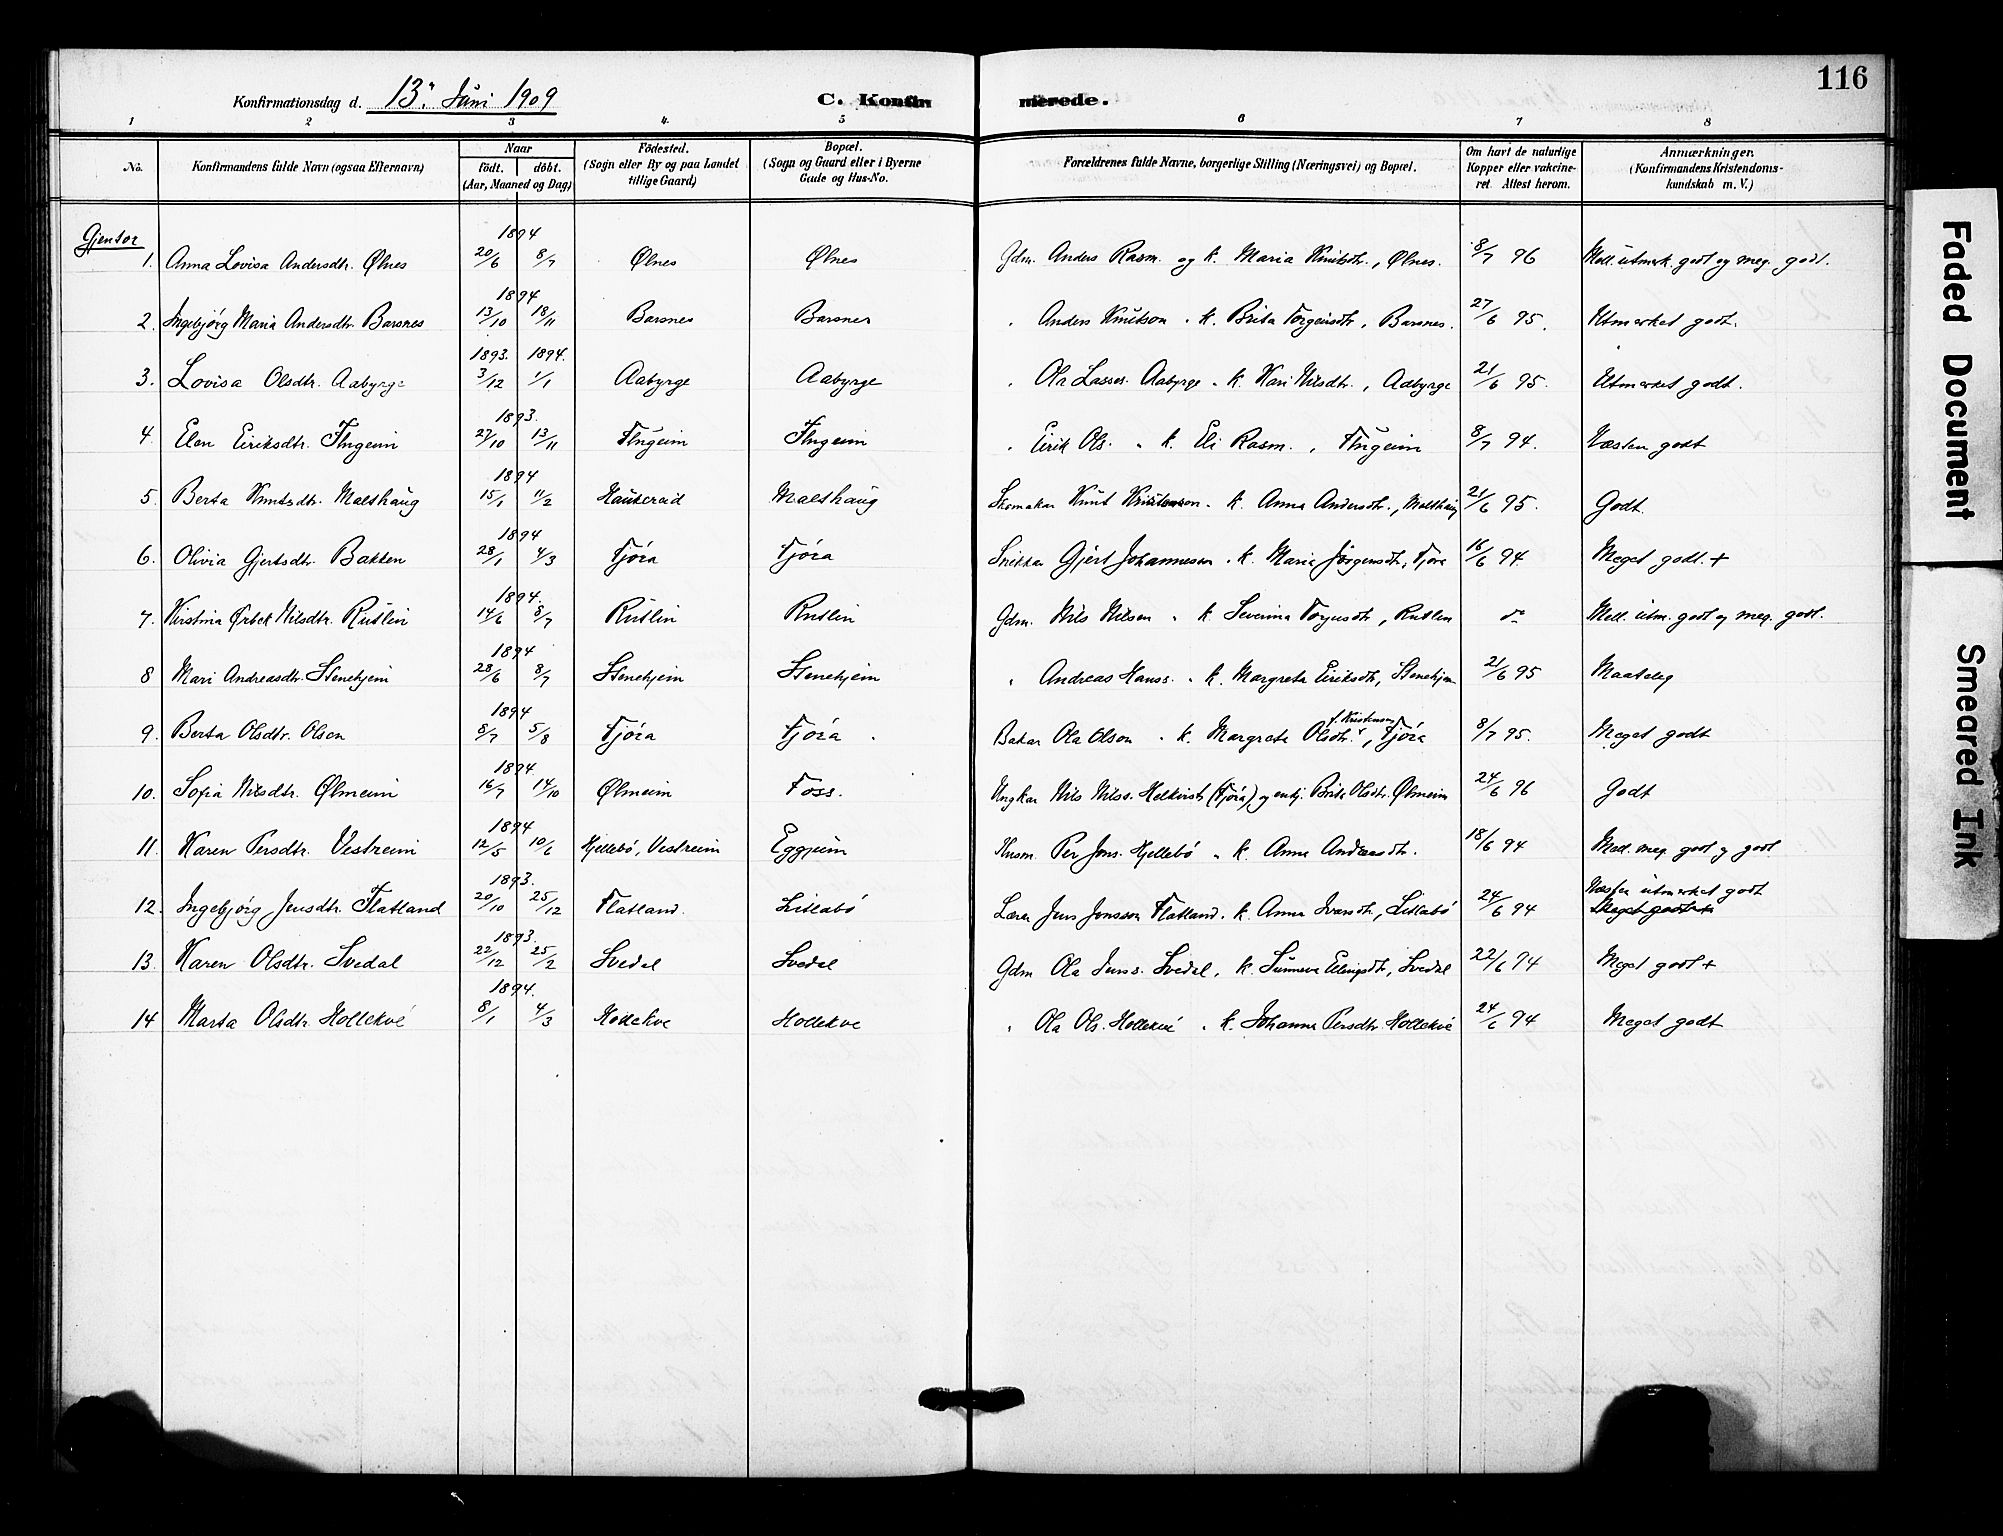 116
Konfirmationsdag d. 13. Juni 1909 C. Konfirmerede.
1 2 3 4. 5 6 7 8
No. Konfirmandens fulde Navn (ogsaa Efternavn) Naar födt. döbt. (Aar, Maaned og Dag) Födested. (Sogn eller By og paa Landet tillige Gaard) Bopæl. (Sogn og Gaard eller i Byerne Gade og Hus-No. Forældrenes fulde Navne, borgerlige Stilling (Næringsvei) og Bopæl. Om havt de naturlige Kopper eller vakcineret. Attest herom. Anmærkninger. (Konfirmandens Kristendomskundskab m. V.)
Gjentor
1894
1. Anna Lovisa Andersdtr. Ølnes 20/6 8/7 Ølnes Ølnes Gdm. Anders Rasm. og k. Maria Knutsdtr., Ølnes. 8/7 96 Mell. utmerk. godt og meg. godt.
1894
2. Ingebjörg Maria Andersdtr. Barsnes 13/10 18/11 Barsnes Barsnes " Anders Knutson " k. Brita Torgeirsdtr, Barsnes. 27/6 95. Utmerket godt.
1893. 1894.
3. Lovisa Olsdtr. Aabyrge 3/12 1/1 Aabyrge Aabyrge " Ola Lasses. Aabyrge " k. Kari Nilsdtr., Aabyrge 21/6 95. Utmerket godt.
1893.
4. Elen Eiriksdtr. Flugeim 27/10 13/11 Flugeim Flugeim " Eirik Ols. " k. Eli Rasm. , Flugeim 8/7 94. Næsten godt
1894
5. Berta Knutsdtr. Malthaug 15/1 11/2 Haukereid Malthaug Skomakar Knut Knutson " k. Anna Andersdtr., Malthaug 21/6 95. Godt.
1894
6. Olivia Gjertsdtr. Bakken 28/1 4/3 Fjöra Fjöra Snikkar Gjert Johannesson " k. Maria Jörgensdtr, Fjöra 16/6 94. Meget godt. +
1894.
7. Kirstina Ørbek Nilsdtr. Rutlin 14/6 8/7 Rutlin Rutlin Gdm. Nils Nilsen " k. Severina Torgersdtr, Rutlin do Mell. utm. godt og meg. godt.
1894
8 Mari Andreasdtr. Stenehjem 28/6 8/7 Stenehjem Stenehjem " Andreas Hanss. " k. Margreta Eiriksdtr, Stenehjem 21/6 95 Maateleg
1894
9. Berta Olsdtr. Olson 8/7 5/8 Fjöra Fjöra . Bakar Ola Olson " k. Margreta Olsdtr. f. Kristenson, Fjöra 8/7 95. Meget godt
1894.
10. Sofia Nilsdtr. Ølmeim 16/7 14/10 Ølmeim Foss. Ungkar Nils Nilss. Helkvist (Fjöra) og enkj. Brita Olsdtr. Ølmeim 24/6 96 Godt
1894
11. Karen Persdtr. Vestreim 12/5 10/6 Hjellebö, Vestreim Eggjum Husm. Per Jons. Hjellebö " k. Anna Andersdtr. 18/6 94 Mell. meg. godt og godt
1893.
12. Ingebjörg Jensdtr. Flatland 20/10 25/12 Flatland. Litlabö Lærer Jens Jensson Flatland. k. Anna Ivarsdtr, Litlabö 24/6 94 Næsten utmerket godt
Meget godt +
1893.
13. Karen Olsdtr. Svedal 22/12 25/2 Svedal Svedal Gdm Ola Jenss. Svedal, k. Sunneva Erlingsdtr, Svedal 22/6 94 Meget godt +
1894.
14 Marta Olsdtr. Hollekve 8/1 4/3 Hollekve Hollekve " Ola Ols. Hollekve " k. Johanna Persdtr Hollekve 24/6 94 Meget godt
Faded Document
Smeared Ink